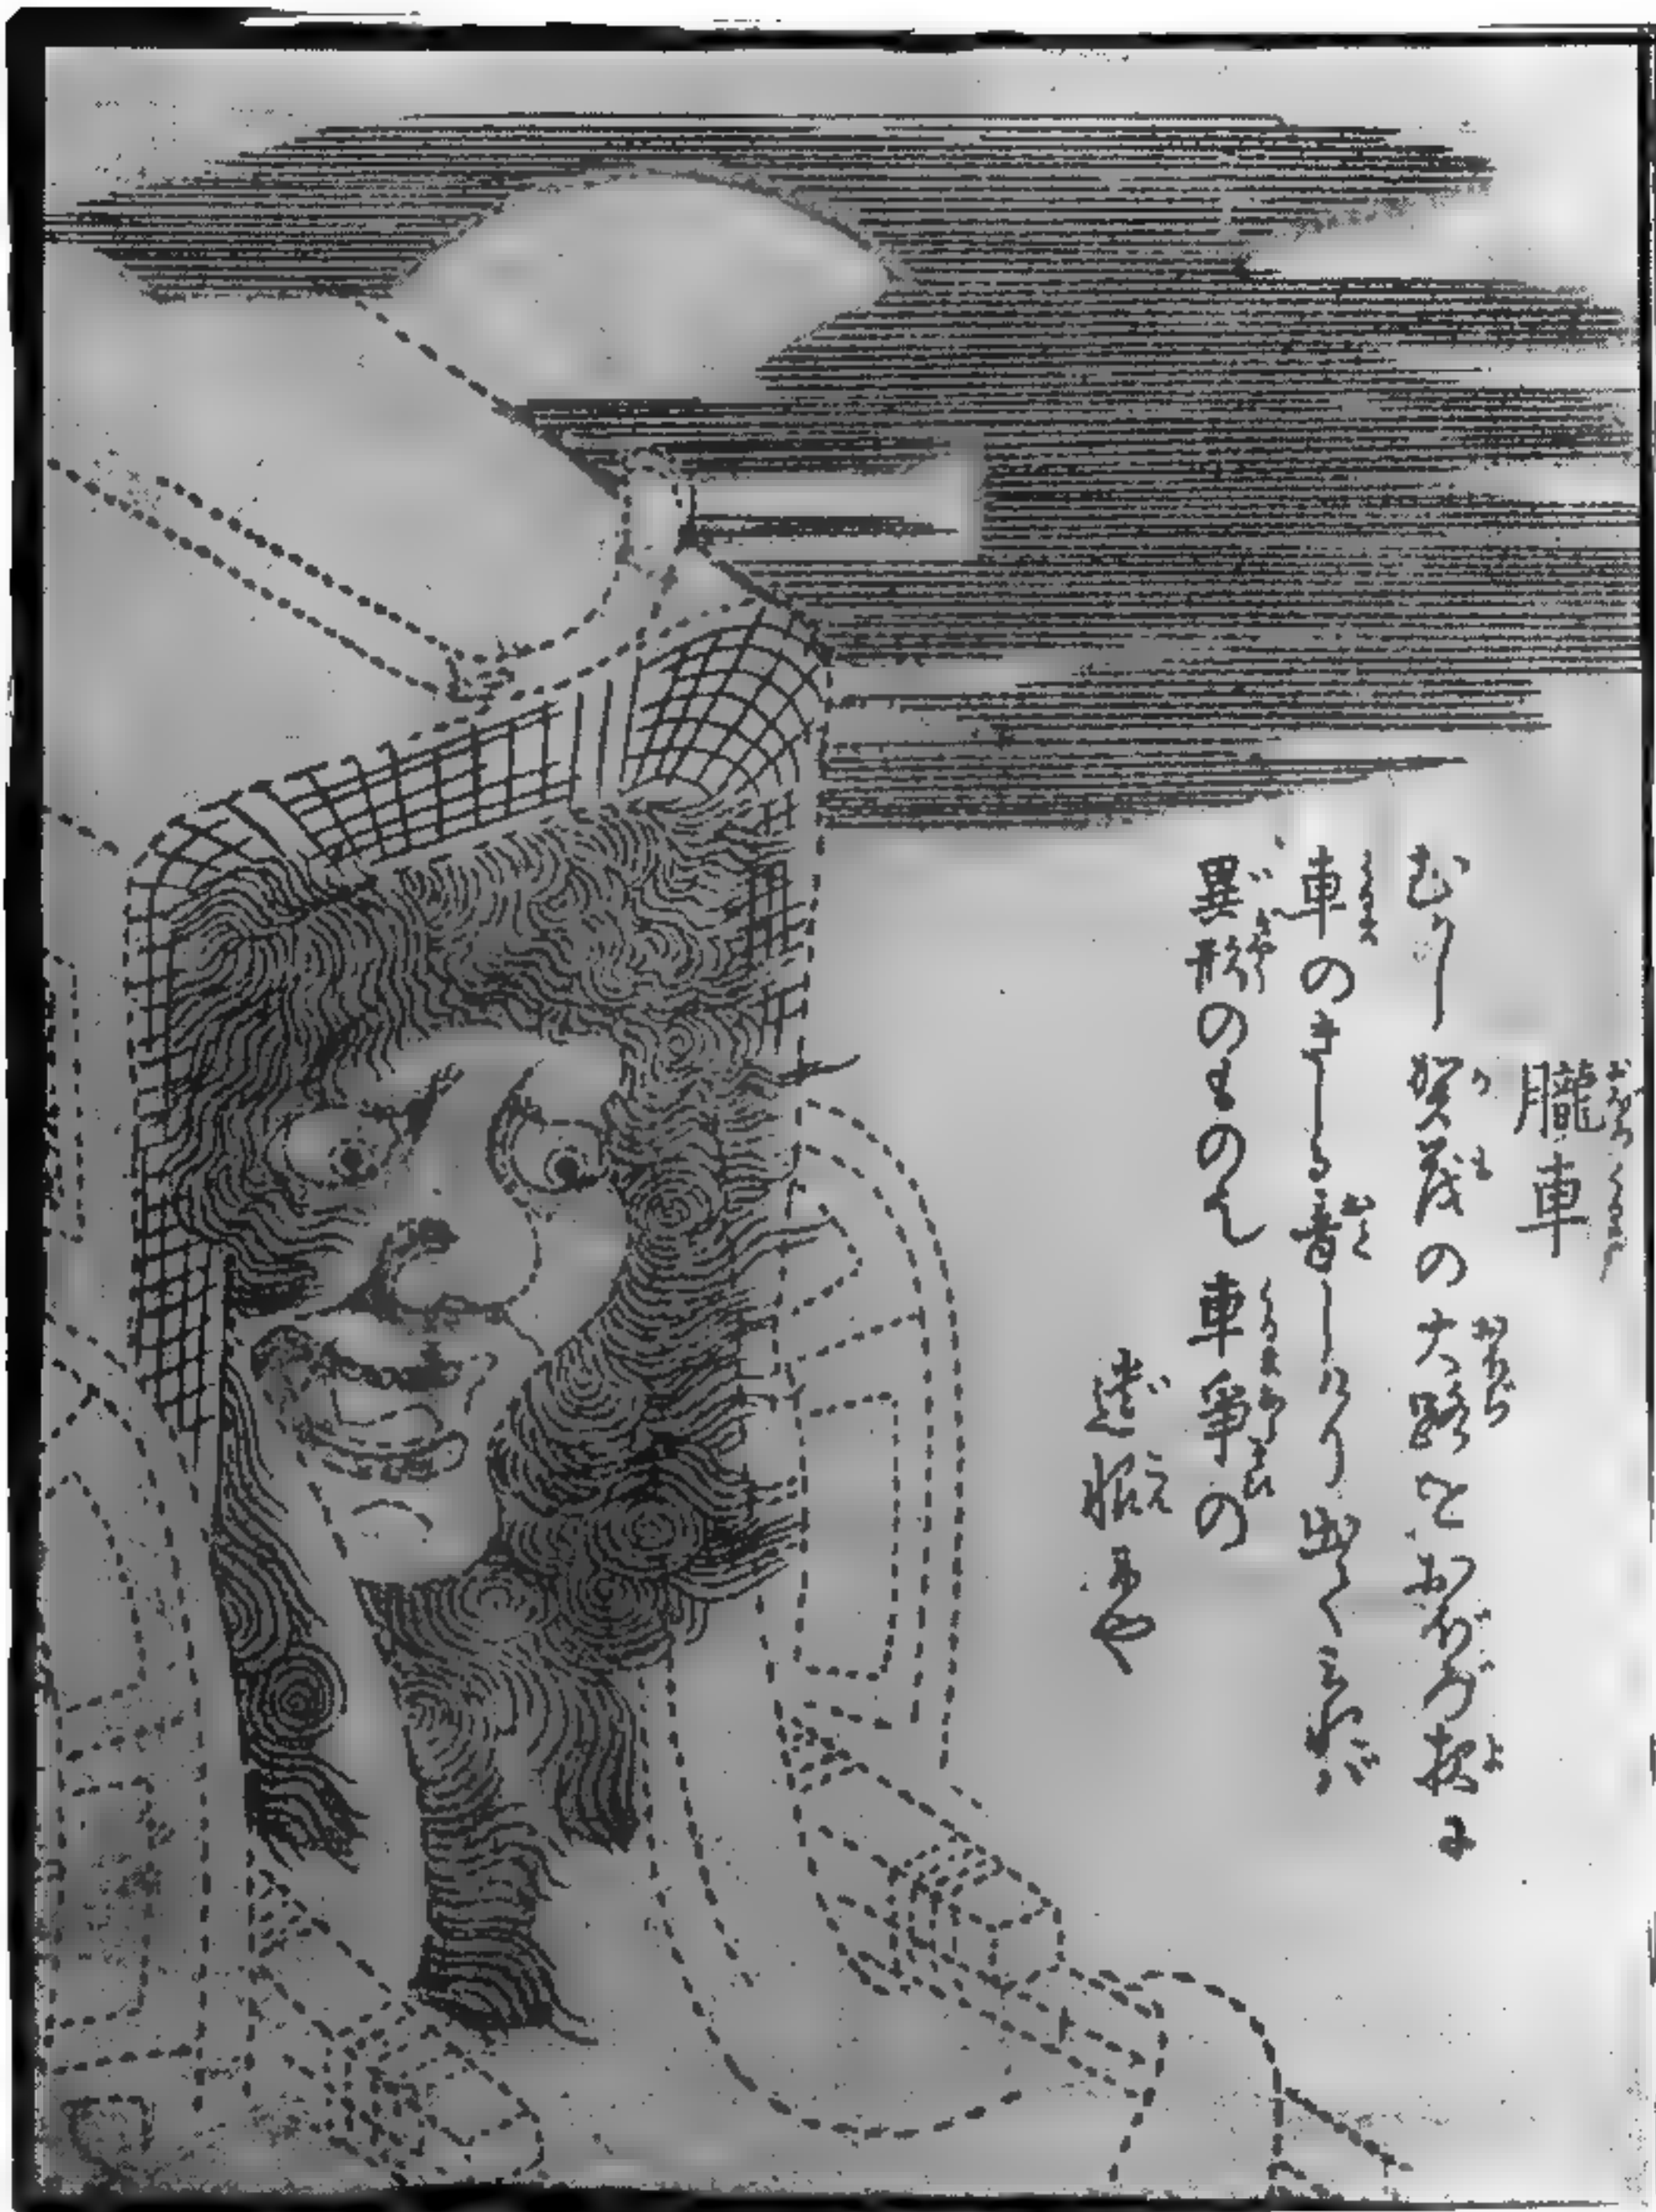 朧車
むかし賀茂の大路をおぼろ夜に
車のきしる音しけり出てみれば
異形のもの也車争の
遺恨にや